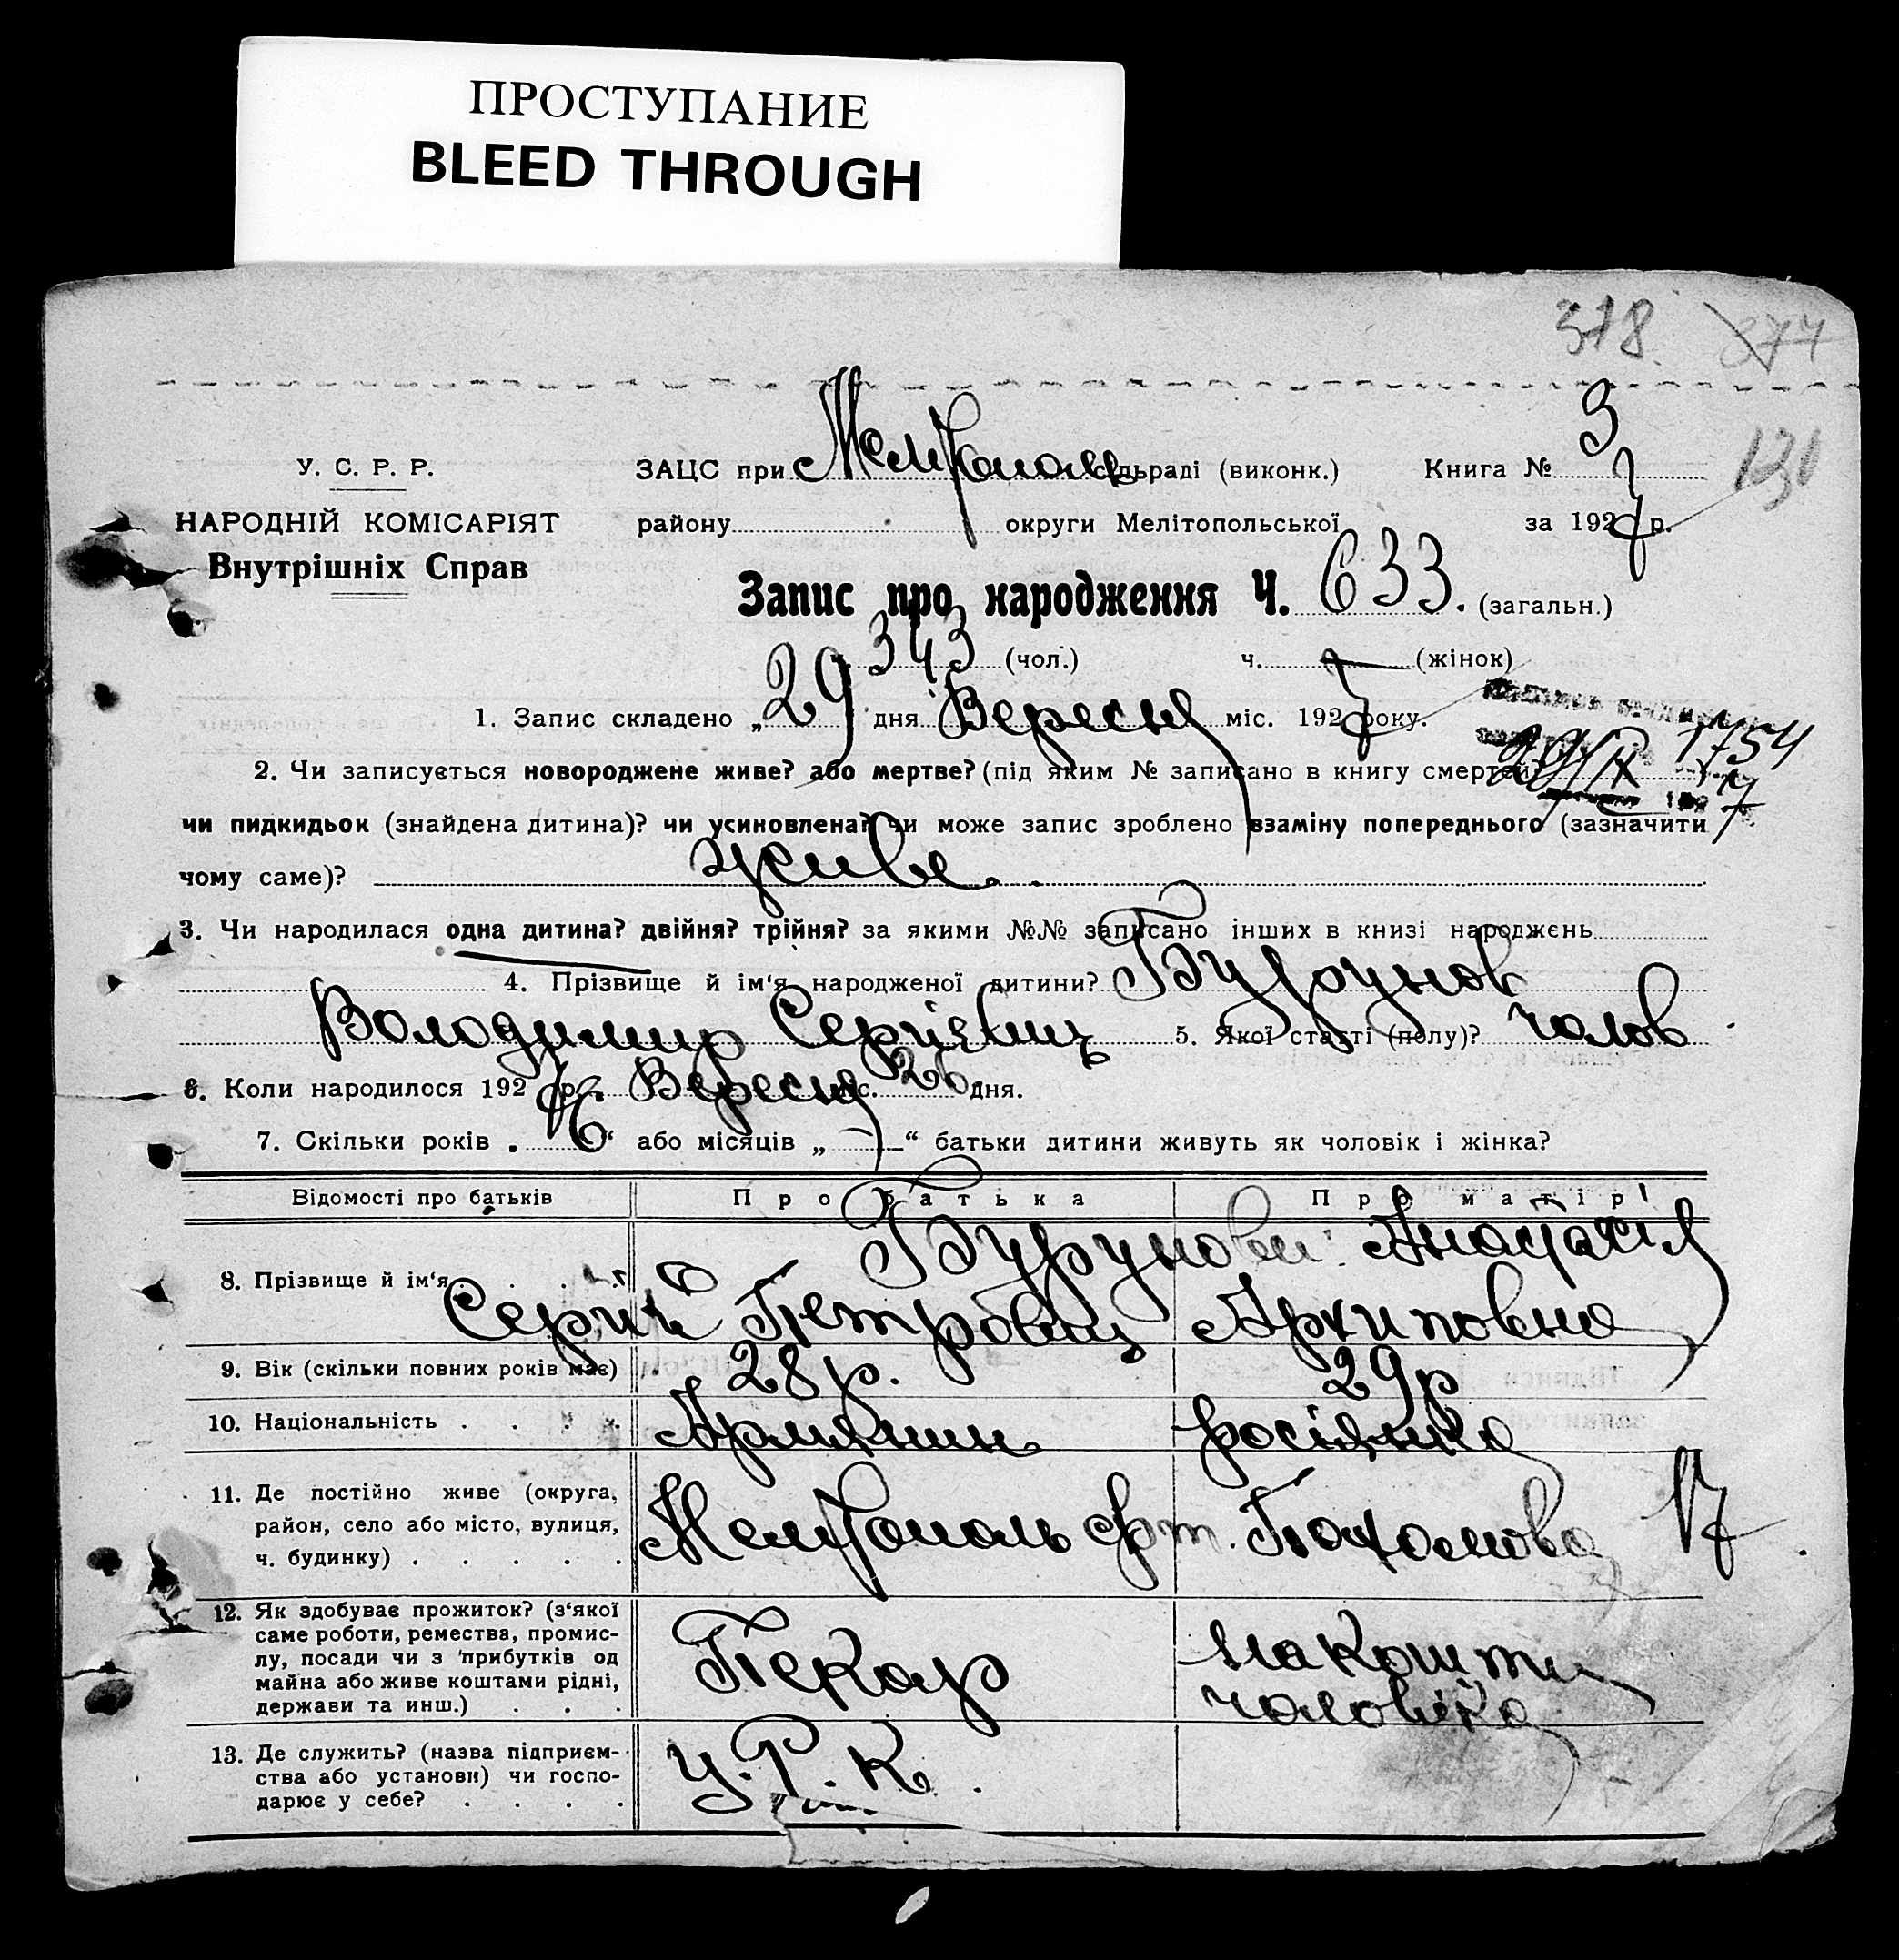 ПРОСТУПАНИЕ
BLEED THROUGH
378. 377
У. С. Р. Р. ЗАЦС при Мелітополь сільраді (виконк.) Книга № 3 130
НАРОДНІЙ КОМІСАРІЯТ району округи Мелітопольської за 1927 р.
Внутрішніх Справ
Запис про народження Ч. 633. (загальн.)
343 (чол.) ч. (жінок)
1. Запис складено „29 дня Вересня міс. 1927 року.
29/IX 1754
2. Чи записується новороджене живе? або мертве? (під яким № записано в книгу смертей?
7
чи пидкидьок (знайдена дитина)? чи усиновлена? чи може запис зроблено взаміну попереднього (зазначити
чому саме)? живе.
3. Чи народилася одна дитина? двійня? трійня? за якими №№ записано інших в книзі народжень
4. Прізвище й ім'я народженої дитини? Бурунов
Володимир Сергієвич 5. Якої статті (полу)? чолов
6. Коли народилося 1927 р. Вересня міс. 26 дня.
7. Скільки років „6“ або місяців „—“ батьки дитини живуть як чоловік і жінка?
Відомості про батьків Про батька Про матір
8. Прізвище й ім'я Бурунови: Анастасія
Сергій Петрович Архиповна
9. Вік (скільки повних років має) 28 р. 29 р
10. Національність Армянин росіянка
11. Де постійно живе (округа,
район, село або місто, вулиця,
ч. будинку) Мелітополь 17
12. Як здобуває прожиток? (з'якої
саме роботи, ремества, промис-
лу, посади чи з прибутків од
майна або живе коштами рідні,
держави та инш.) Пекар на кошти
чоловіка
13. Де служить? (назва підприєм-
ства або установи) чи госпо-
дарює у себе? У.Р.К.